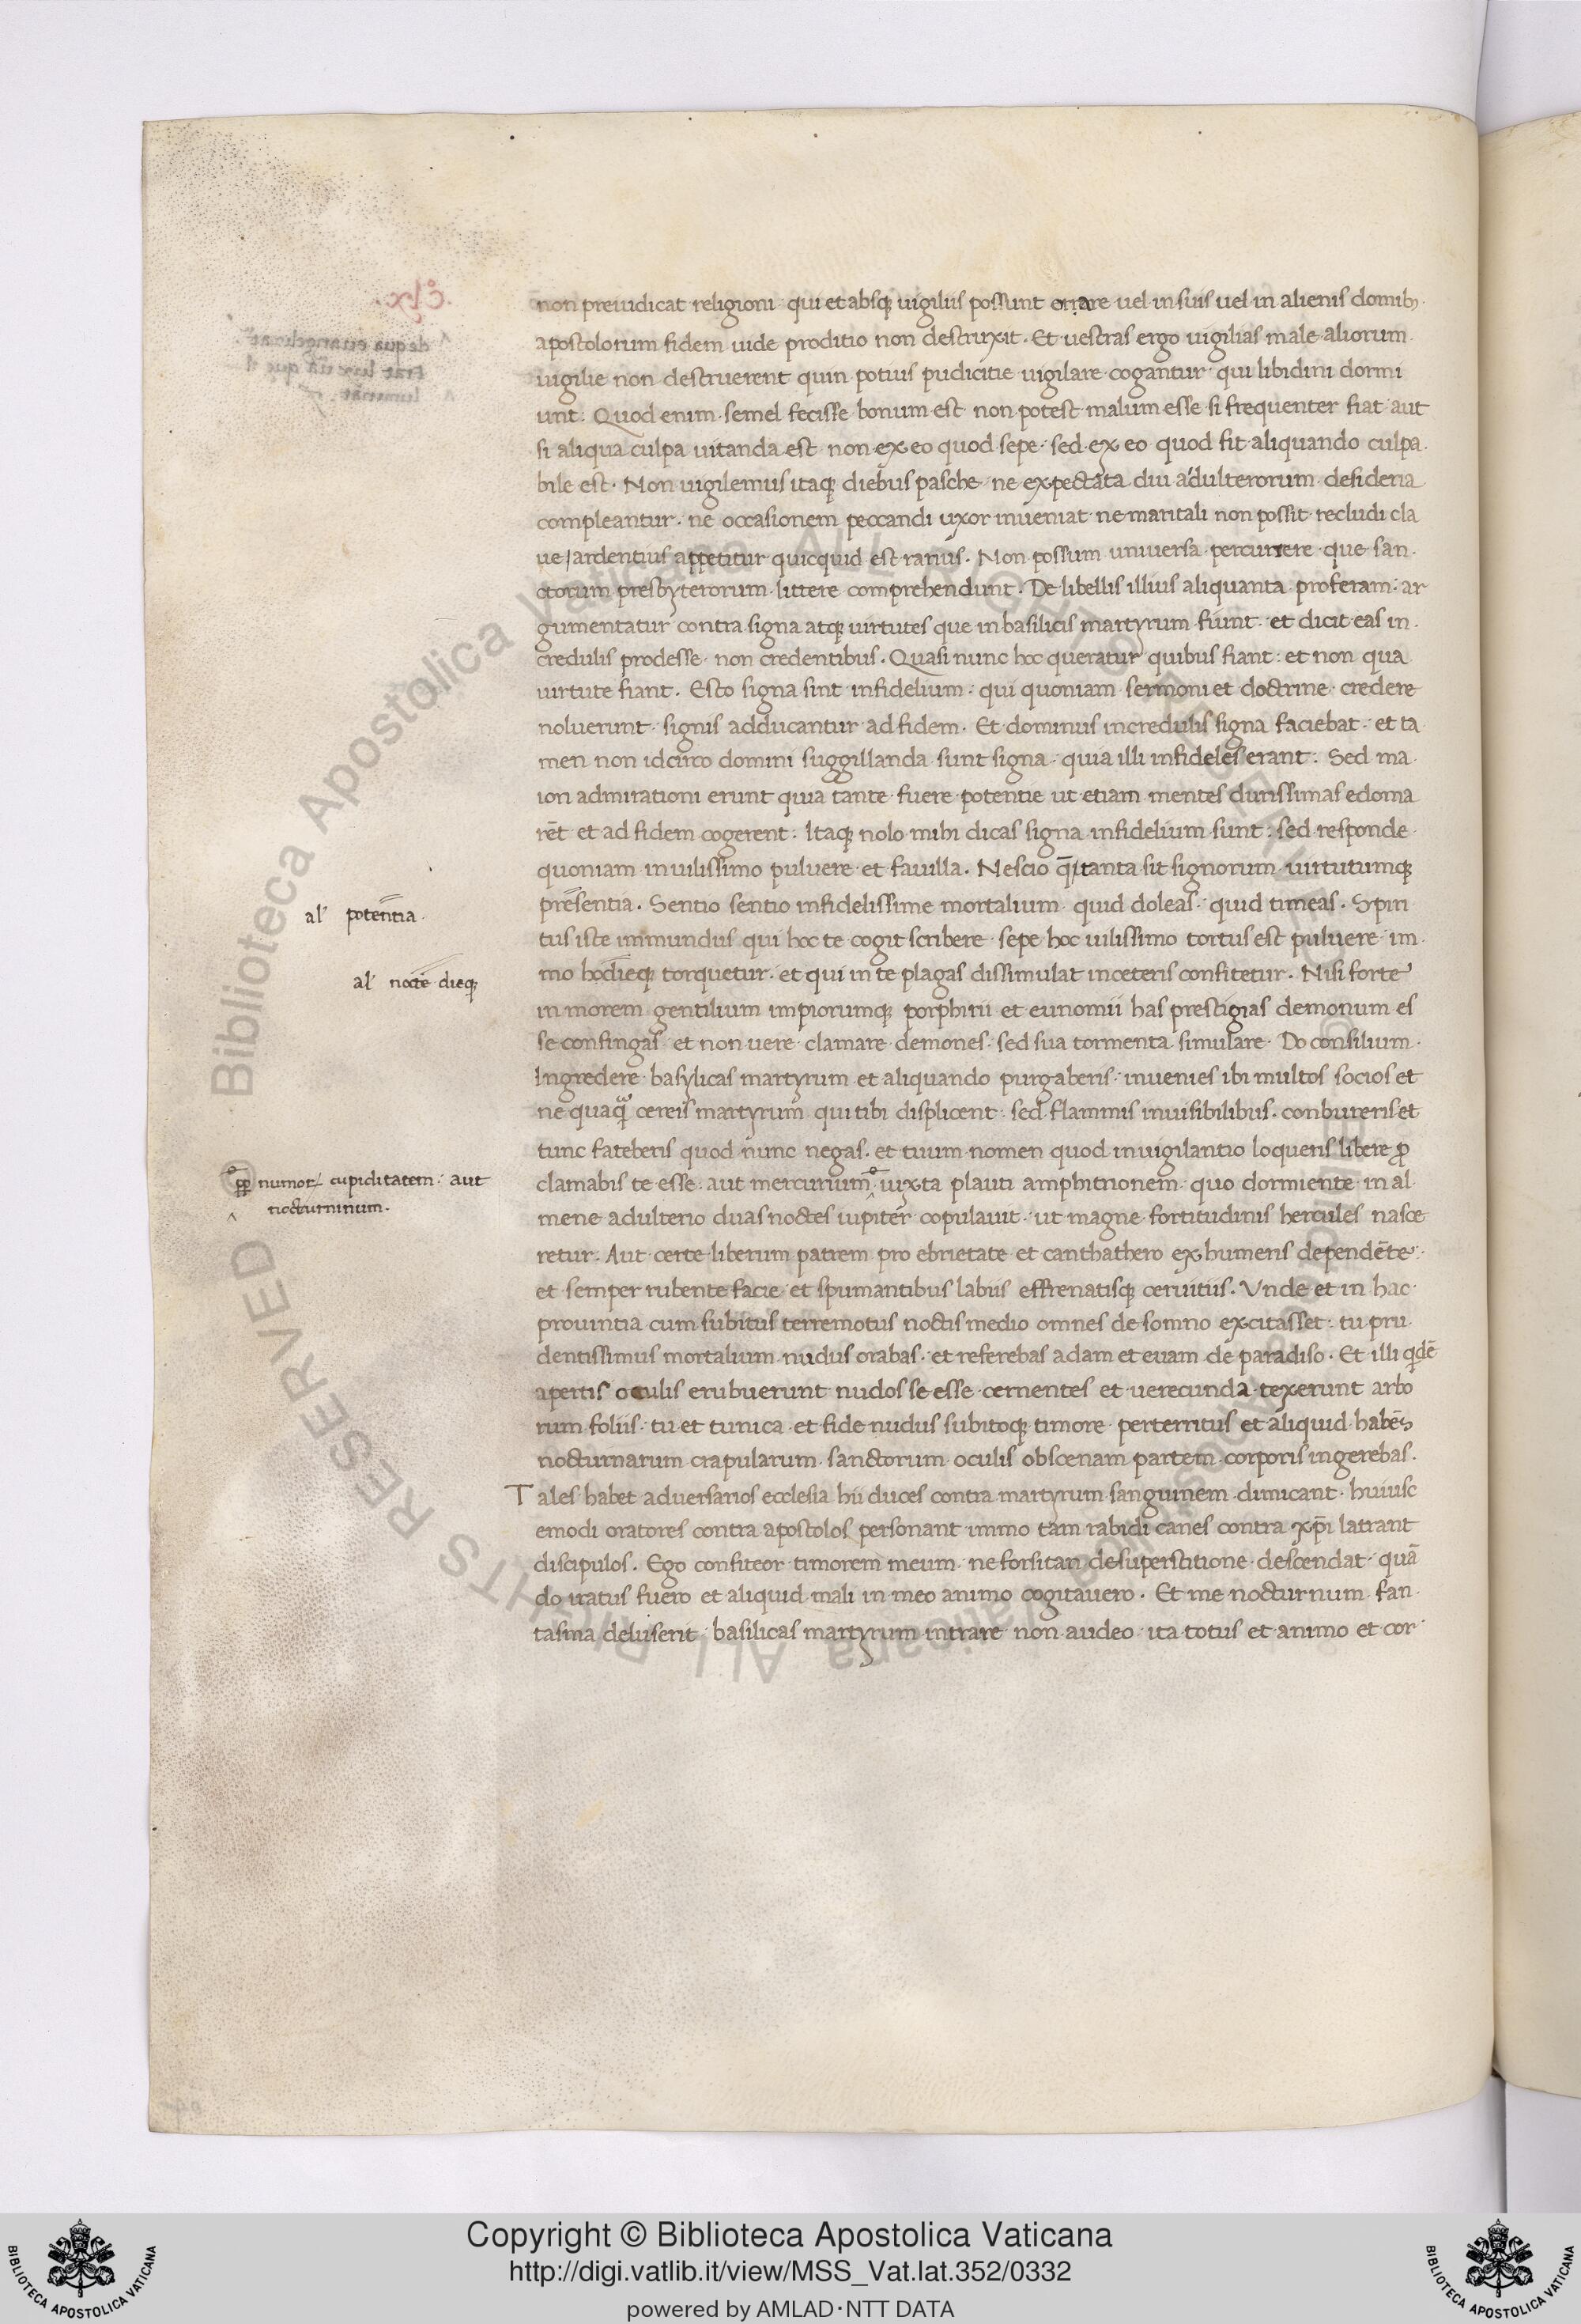 non preiudicat religioni· qui et absq; uigiliis possunt errare uel in suis uel in alienis domib;·
apostolorum fidem iude proditio non destruxit· Et uestras ergo uigilias male aliorum·
uigilie non destruerent quin potius pudicitie uigilare cogantur· qui libidini dormi
unt· Quod enim semel fecisse bonum est non potest malum esse si frequenter fiat aut
si aliqua culpa uitanda est non ex eo quod sepe· sed ex eo quod fit aliquando culpa·
bile est· Non uigilemus itaq; diebus pasche ne expectata diu adulterorum desideria
compleantur· ne occasionem peccandi uxor inueniat ne maritali non possit recludi cla
ue/ardentius appetitur quicquid est rarius· Non possum uniuersa percurrere que san·
ctorum presbyterorum littere comprehendunt· De libellis illius aliquanta proferam· ar
gumentatur contra signa atq; uirtutes que in basilicis martyrum fiunt· et dicit eas in·
credulis prodesse· non credentibus· Quasi nunc hoc queratur quibus fiant: et non qua·
uirtute fiant· Esto signa sint infidelium· qui quoniam sermoni et doctrine credere
noluerunt· signis adducantur ad fidem· Et dominus incredulis signa faciebat· et ta
men non idcirco domini suggillanda sunt signa· quia illi infideles erant· Sed ma·
iori admirationi erunt quia tante fuere potentie ut etiam mentes durissimas edoma
rēt et ad fidem cogerent· Itaq; nolo mihi dicas signa infidelium sunt: sed responde·
quoniam in uilissimo puluere et fauilla· Nescio q̄ tanta sit signorum uirtutumq;
presentia· Sentio sentio infidelissime mortalium quid doleas· quid timeas· Spiri
al' potentia·
tus iste immundus qui hoc te cogit scribere sepe hoc uilissimo tortus est puluere· im·
mo hodieq; torquetur· et qui in te plagas dissimulat in ceteris confitetur· Nisi forte
al' nocte dieq;
in morem gentilium impiorumq; porphirii et eunomii has prestigias demonum es
se confingas et non uere clamare demones· sed sua tormenta simulare· Do consilium·
Ingredere basylicas martyrum et aliquando purgaberis· inuenies ibi multos socios et
ne quaq̄ cereis martyrum qui tibi displicent· sed flammis inuisibilibus· conbureris et
tunc fateberis quod nunc negas· et tuum nomen quod in uigilantio loqueris libere ꝓ
clamabis te esse· aut mercurium iuxta plauti amphitrionem· quo dormiente in al
ꝓꝑ numor cupiditatem· aut
nocturninum·
mene adulterio duas noctes iupiter copulauit· ut magne fortitudinis hercules nasce
retur· Aut certe liberum patrem pro ebrietate et canthathero ex humeris dependēte·
et semper rubente facie et spumantibus labiis effrenatisq; ceruitiis· Vnde et in hac·
prouintia cum subitus terremotus noctis medio omnes de somno excitasset· tu pru·
dentissimus mortalium nudus orabas· et referebas adam et euam de paradiso· Et illi qidē
apertis oculis erubuerunt nudos se esse cernentes et uerecunda texerunt arbo
rum foliis· tu et tunica et fide nudus subitoq; timore perterritus et aliquid habēs
nocturnarum crapularum sanctorum oculis obscenam partem corporis ingerebas·
Tales habet aduersarios ecclesia hii duces contra martyrum sanguinem dimicant· huiusc
emodi oratores contra apostolos personant immo tam rabidi canes contra xp̄i latrant
discipulos· Ego confiteor timorem meum· ne forsitan de superstitione descendat· quā
do iratus fuero et aliquid mali in meo animo cogitauero· Et me nocturnum fan·
tasma deluserit· basilicas martyrum intrare non audeo· ita totus et animo et cor
Copyright © Biblioteca Apostolica Vaticana
http://digi.vatlib.it/view/MSS_Vat.lat.352/0332
powered by AMLAD·NTT DATA